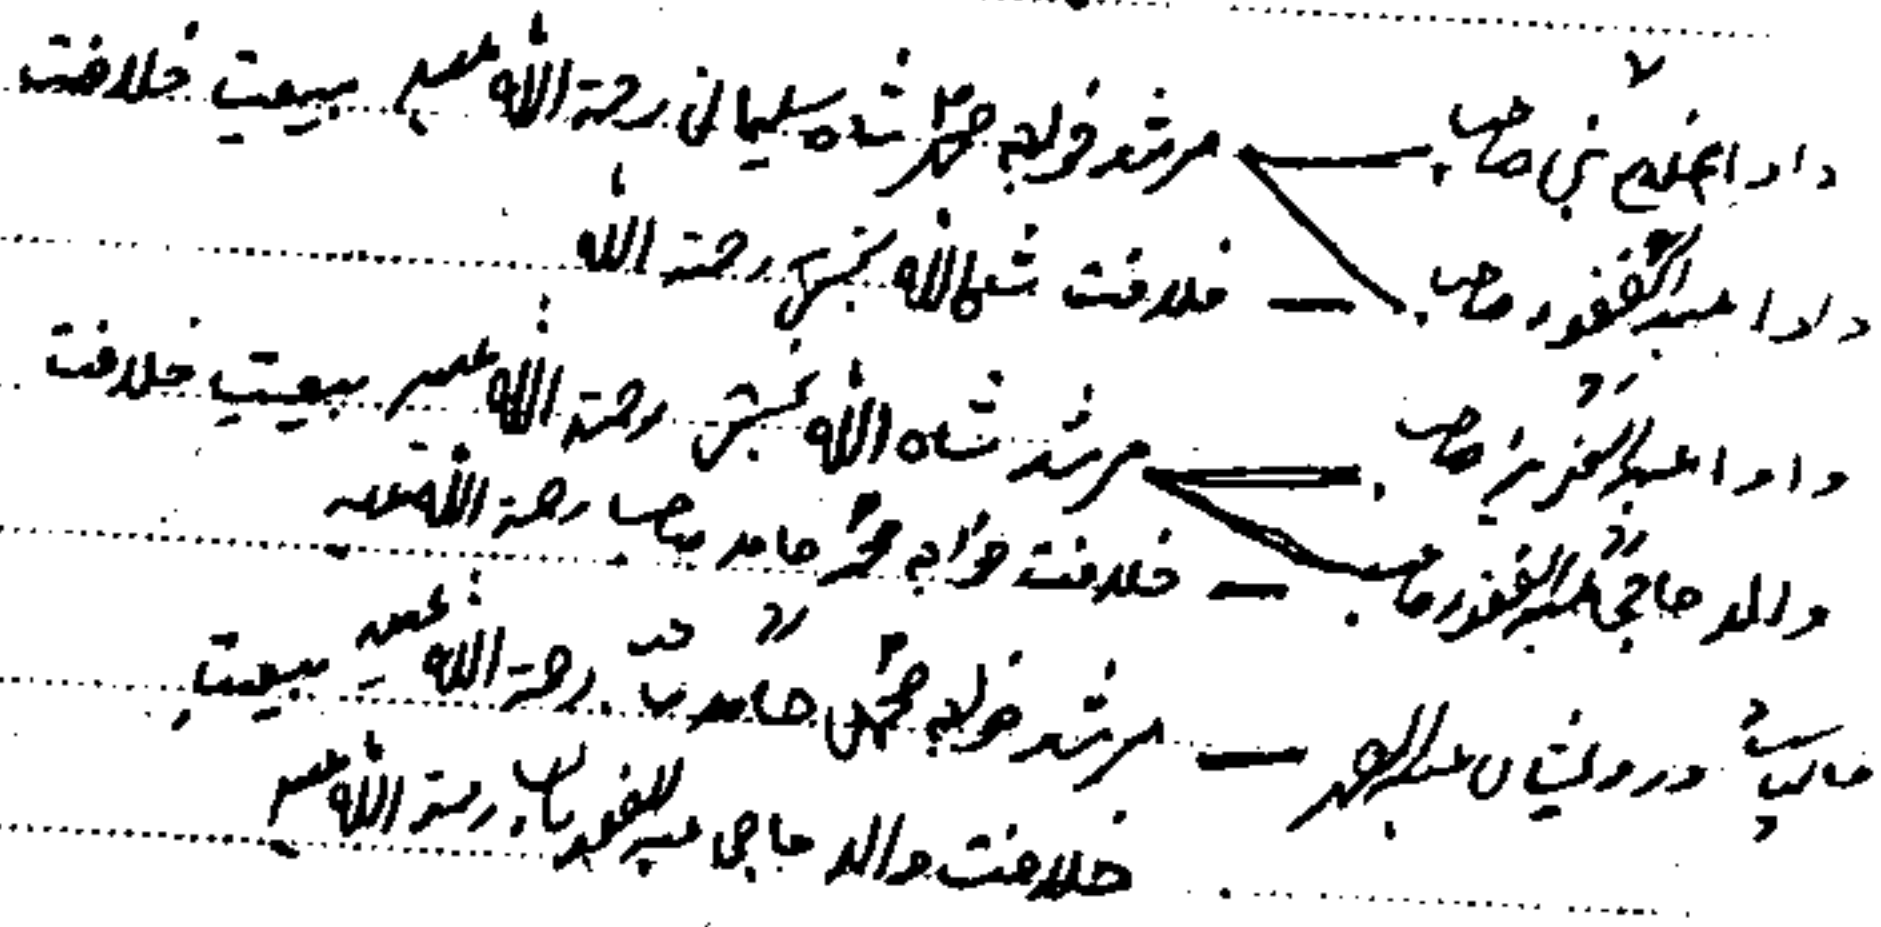 دادا غلام نبی صاحب — مرشد خواجہ محمد شاہ سلیمانی رحمۃ اللہ علیہ بیعت خلافت
دادا عبدالغفور صاحب — خلافت شاہ اللہ بخش رحمۃ اللہ
دادا عبدالعزیز صاحب — مرشد شاہ اللہ بخش رحمۃ اللہ علیہ بیعت خلافت
والد حاجی عبدالغفور صاحب — خلافت خواجہ محمد حامد صاحب رحمۃ اللہ علیہ
درویشاں — مرشد خواجہ محمد حامد رحمۃ اللہ علیہ بیعت
خلافت والد حاجی عبدالغفور صاحب رحمۃ اللہ علیہ